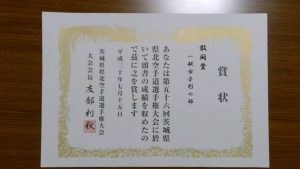 賞状
敢闘賞
一般女子形の部
あなたは第五十六回茨城県
県北空手道選手権大会に於
いて頭書の成績を収めたの
で茲に之を賞します
平成三十年七月十五日
茨城県県北空手道選手権大会
大会会長 友部利秋